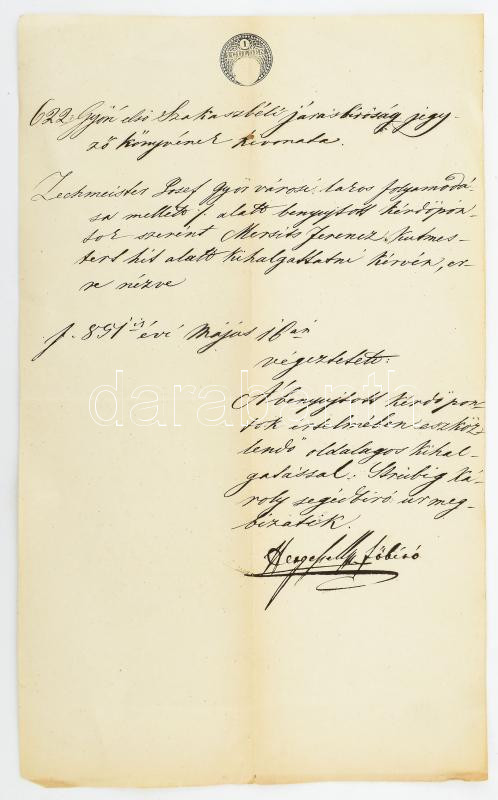 1
622. Győri első Szakaszbéli járásbiróság jegy-
ző könyvének kivonata.
Zechmeister Josef Győr városi lakos folyamodá-
sa mellett /. alatt benyujtott kérdőpon-
tok szerént Mersits Ferencz Kutmes-
tert hit alatt kihalgattatni kérvén, er-
re nézve
f. 851ik évi Május 16án
végeztetett:
A benyujtott kérdőpon-
tok értelmében eszköz-
lendő oldalagos kihal-
gatással: Stribig Ká-
roly segédbiró úr meg-
bizatik.
főbiró
darabanth